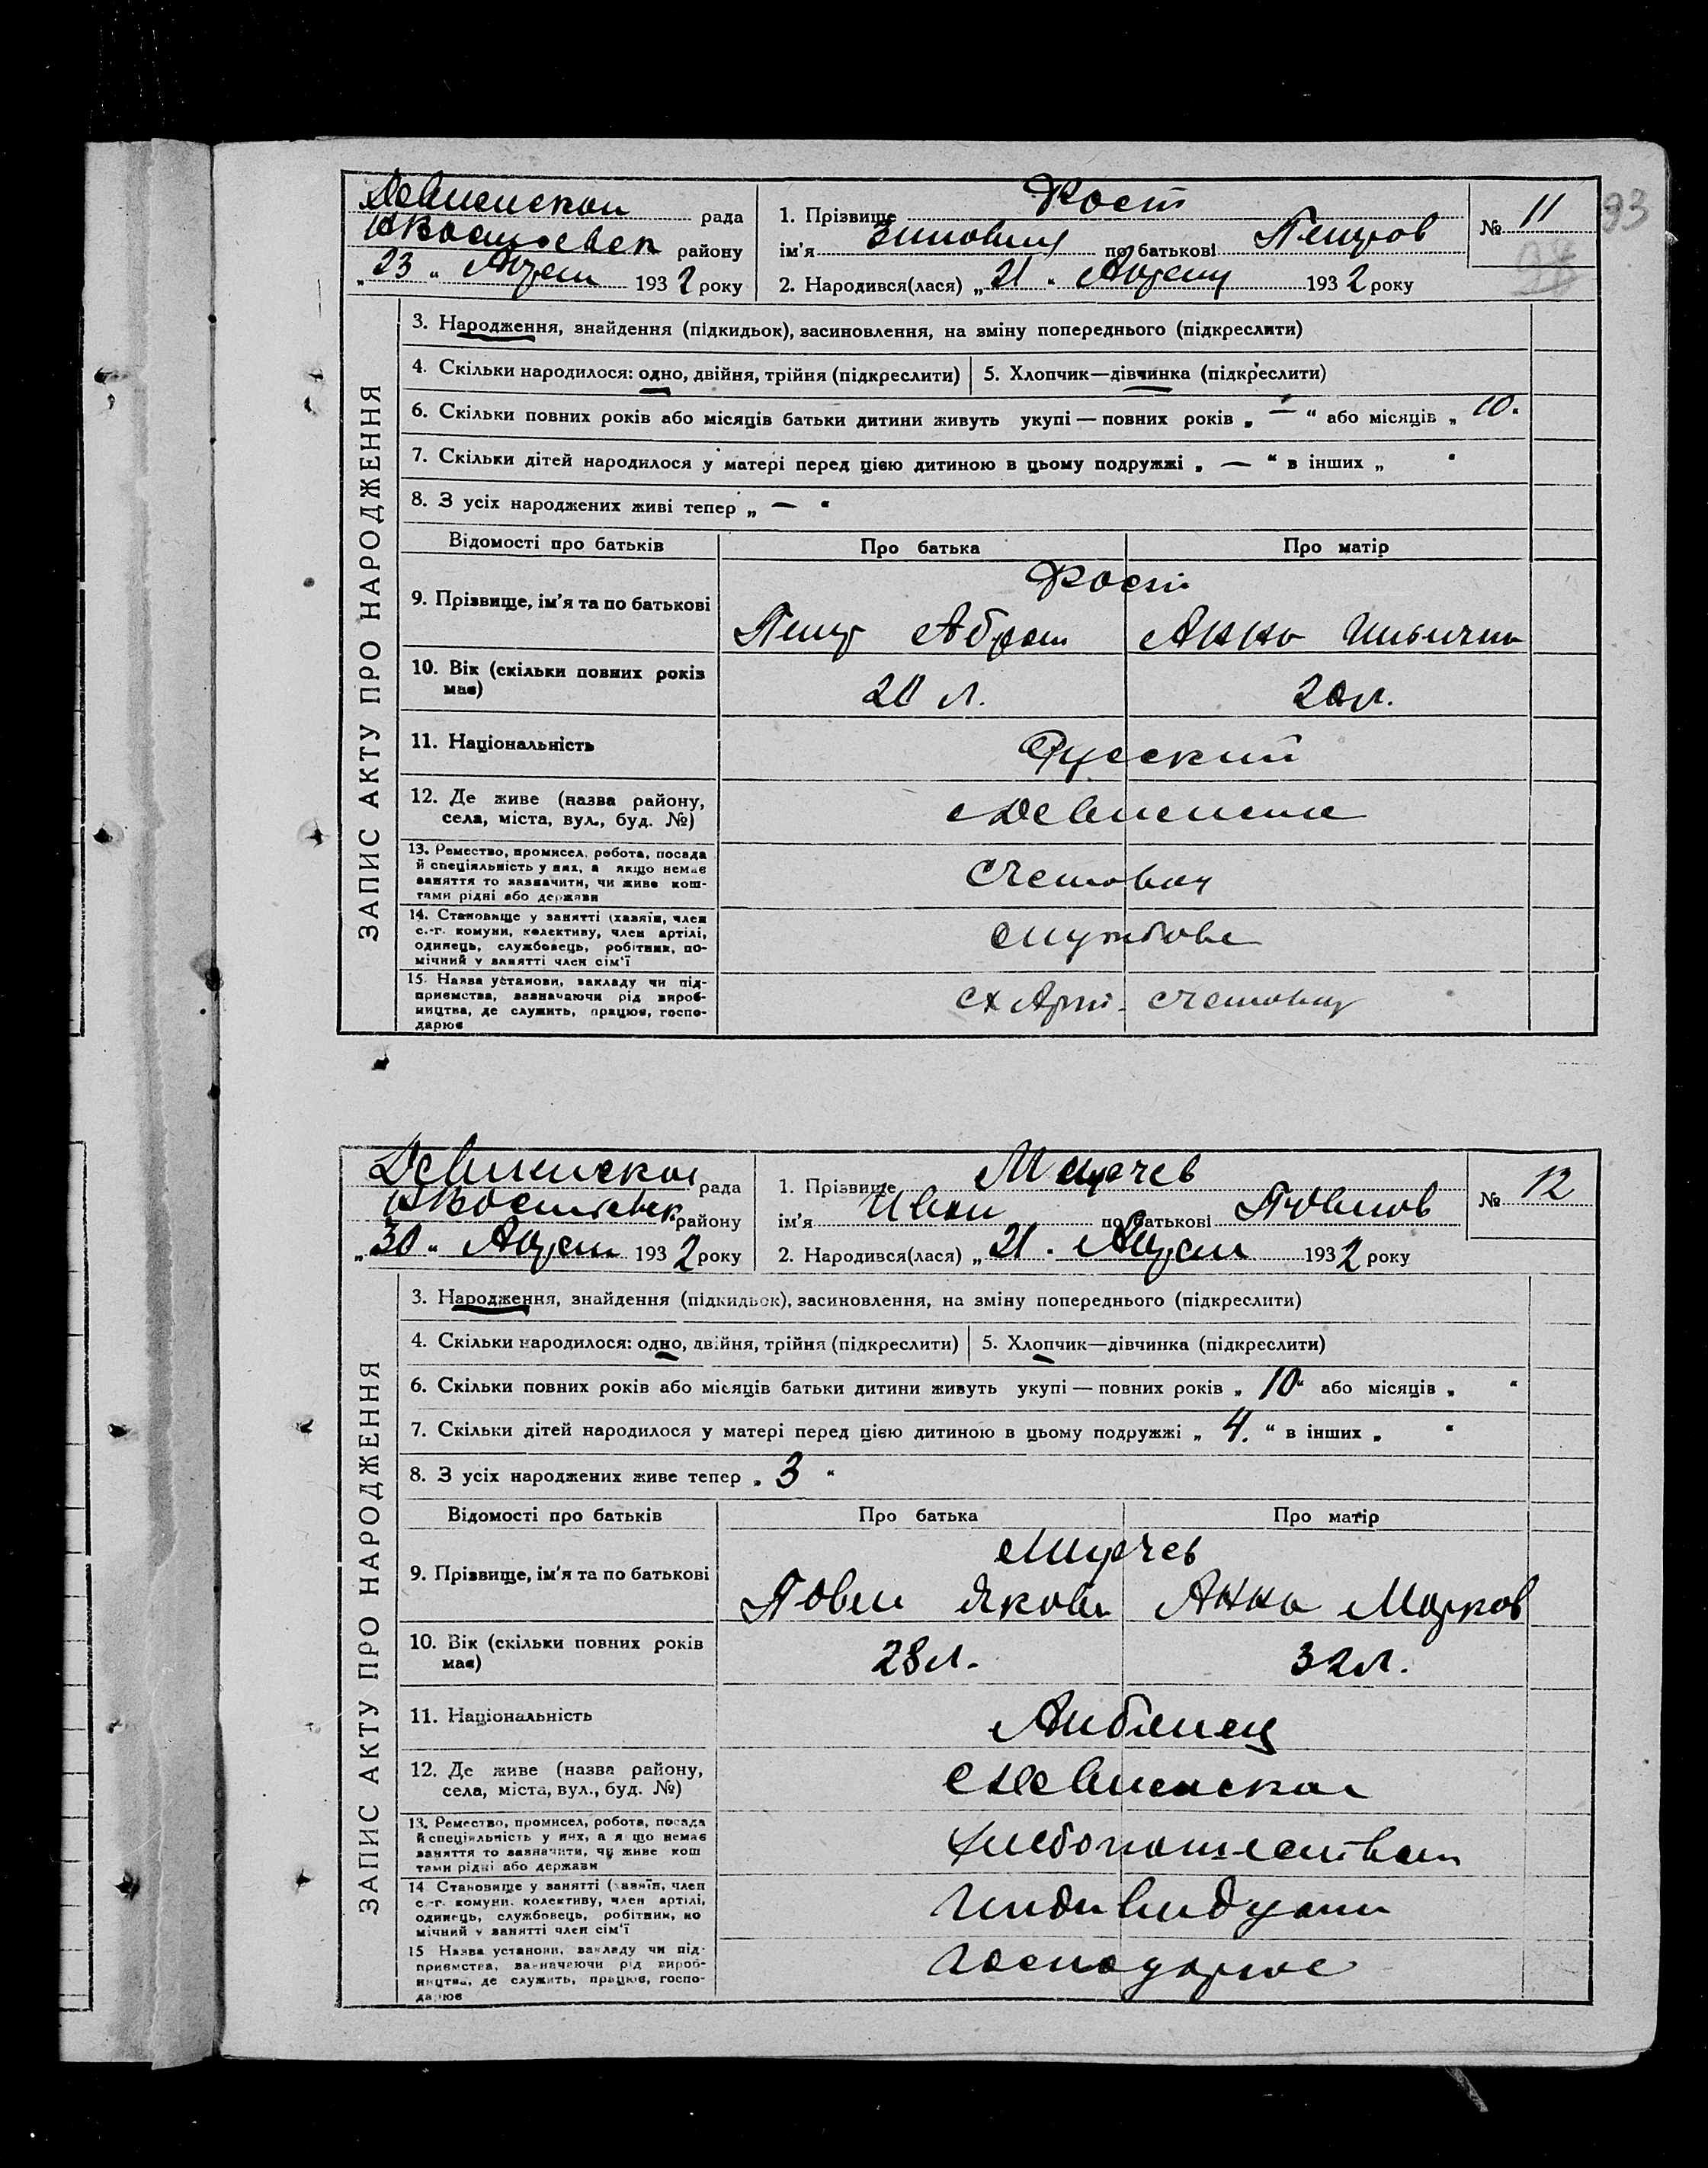 93
рада
району
23 193 2 року
1. Прізвище Рост
ім'я по батькові Петров
2. Народився(лася) „21" 193 2 року
№ 11
ЗАПИС АКТУ ПРО НАРОДЖЕННЯ
3. Народження, знайдення (підкидьок), засиновлення, на зміну попереднього (підкреслити)
4. Скільки народилося: одно, двійня, трійня (підкреслити)
5. Хлопчик—дівчинка (підкреслити)
6. Скільки повних років або місяців батьки дитини живуть укупі — повних років „ — " або місяців „ 10.
7. Скільки дітей народилося у матері перед цією дитиною в цьому подружжі „ — " в інших „ "
8. З усіх народжених живі тепер „ — "
Відомості про батьків
Про батька
Про матір
9. Прізвище, ім'я та по батькові
Рост
Петр Абрам
Анна
10. Вік (скільки повних років
має)
20 л.
11. Національність
Русский
12. Де живе (назва району,
села, міста, вул., буд. №)
13. Ремество, промисел, робота, посада
й спеціяльність у них, а якщо немає
заняття то зазначити, чи живе кош-
тами рідні або держави
Счетовод
14. Становище у занятті (хазяїн, член
с.-г. комуни, колективу, член артілі,
одинець, службовець, робітник, по-
мічний у занятті член сім'ї
службове
15. Назва установи, закладу чи під-
приємства, зазначаючи рід вироб-
ництва, де служить, працює, госпо-
дарює
сх Арт. счетовод
рада
району
„30" 193 2 року
1. Прізвище
ім'я Иван по батькові Павлов
2. Народився(лася) „21" 193 2 року
№ 12
ЗАПИС АКТУ ПРО НАРОДЖЕННЯ
3. Народження, знайдення (підкидьок), засиновлення, на зміну попереднього (підкреслити)
4. Скільки народилося: одно, двійня, трійня (підкреслити)
5. Хлопчик—дівчинка (підкреслити)
6. Скільки повних років або місяців батьки дитини живуть укупі — повних років „ 10 " або місяців „ "
7. Скільки дітей народилося у матері перед цією дитиною в цьому подружжі „ 4. " в інших „ "
8. З усіх народжених живе тепер „ 3 "
Відомості про батьків
Про батька
Про матір
9. Прізвище, ім'я та по батькові
Павел Яковл
Анна Марков
10. Вік (скільки повних років
має)
28 л.
32 л.
11. Національність
Албанец
12. Де живе (назва району,
села, міста, вул., буд. №)
13. Ремество, промисел, робота, посада
й спеціяльність у них, а якщо немає
заняття то зазначити, чи живе кош
тами рідні або держави
14 Становище у занятті (хазяїн, член
с.-г. комуни, колективу, член артілі,
одинець, службовець, робітник, по
мічний у занятті член сім'ї
15 Назва установи, закладу чи під-
приємства, зазначаючи рід вироб-
ництва, де служить, працює, госпо-
дарює
господарює